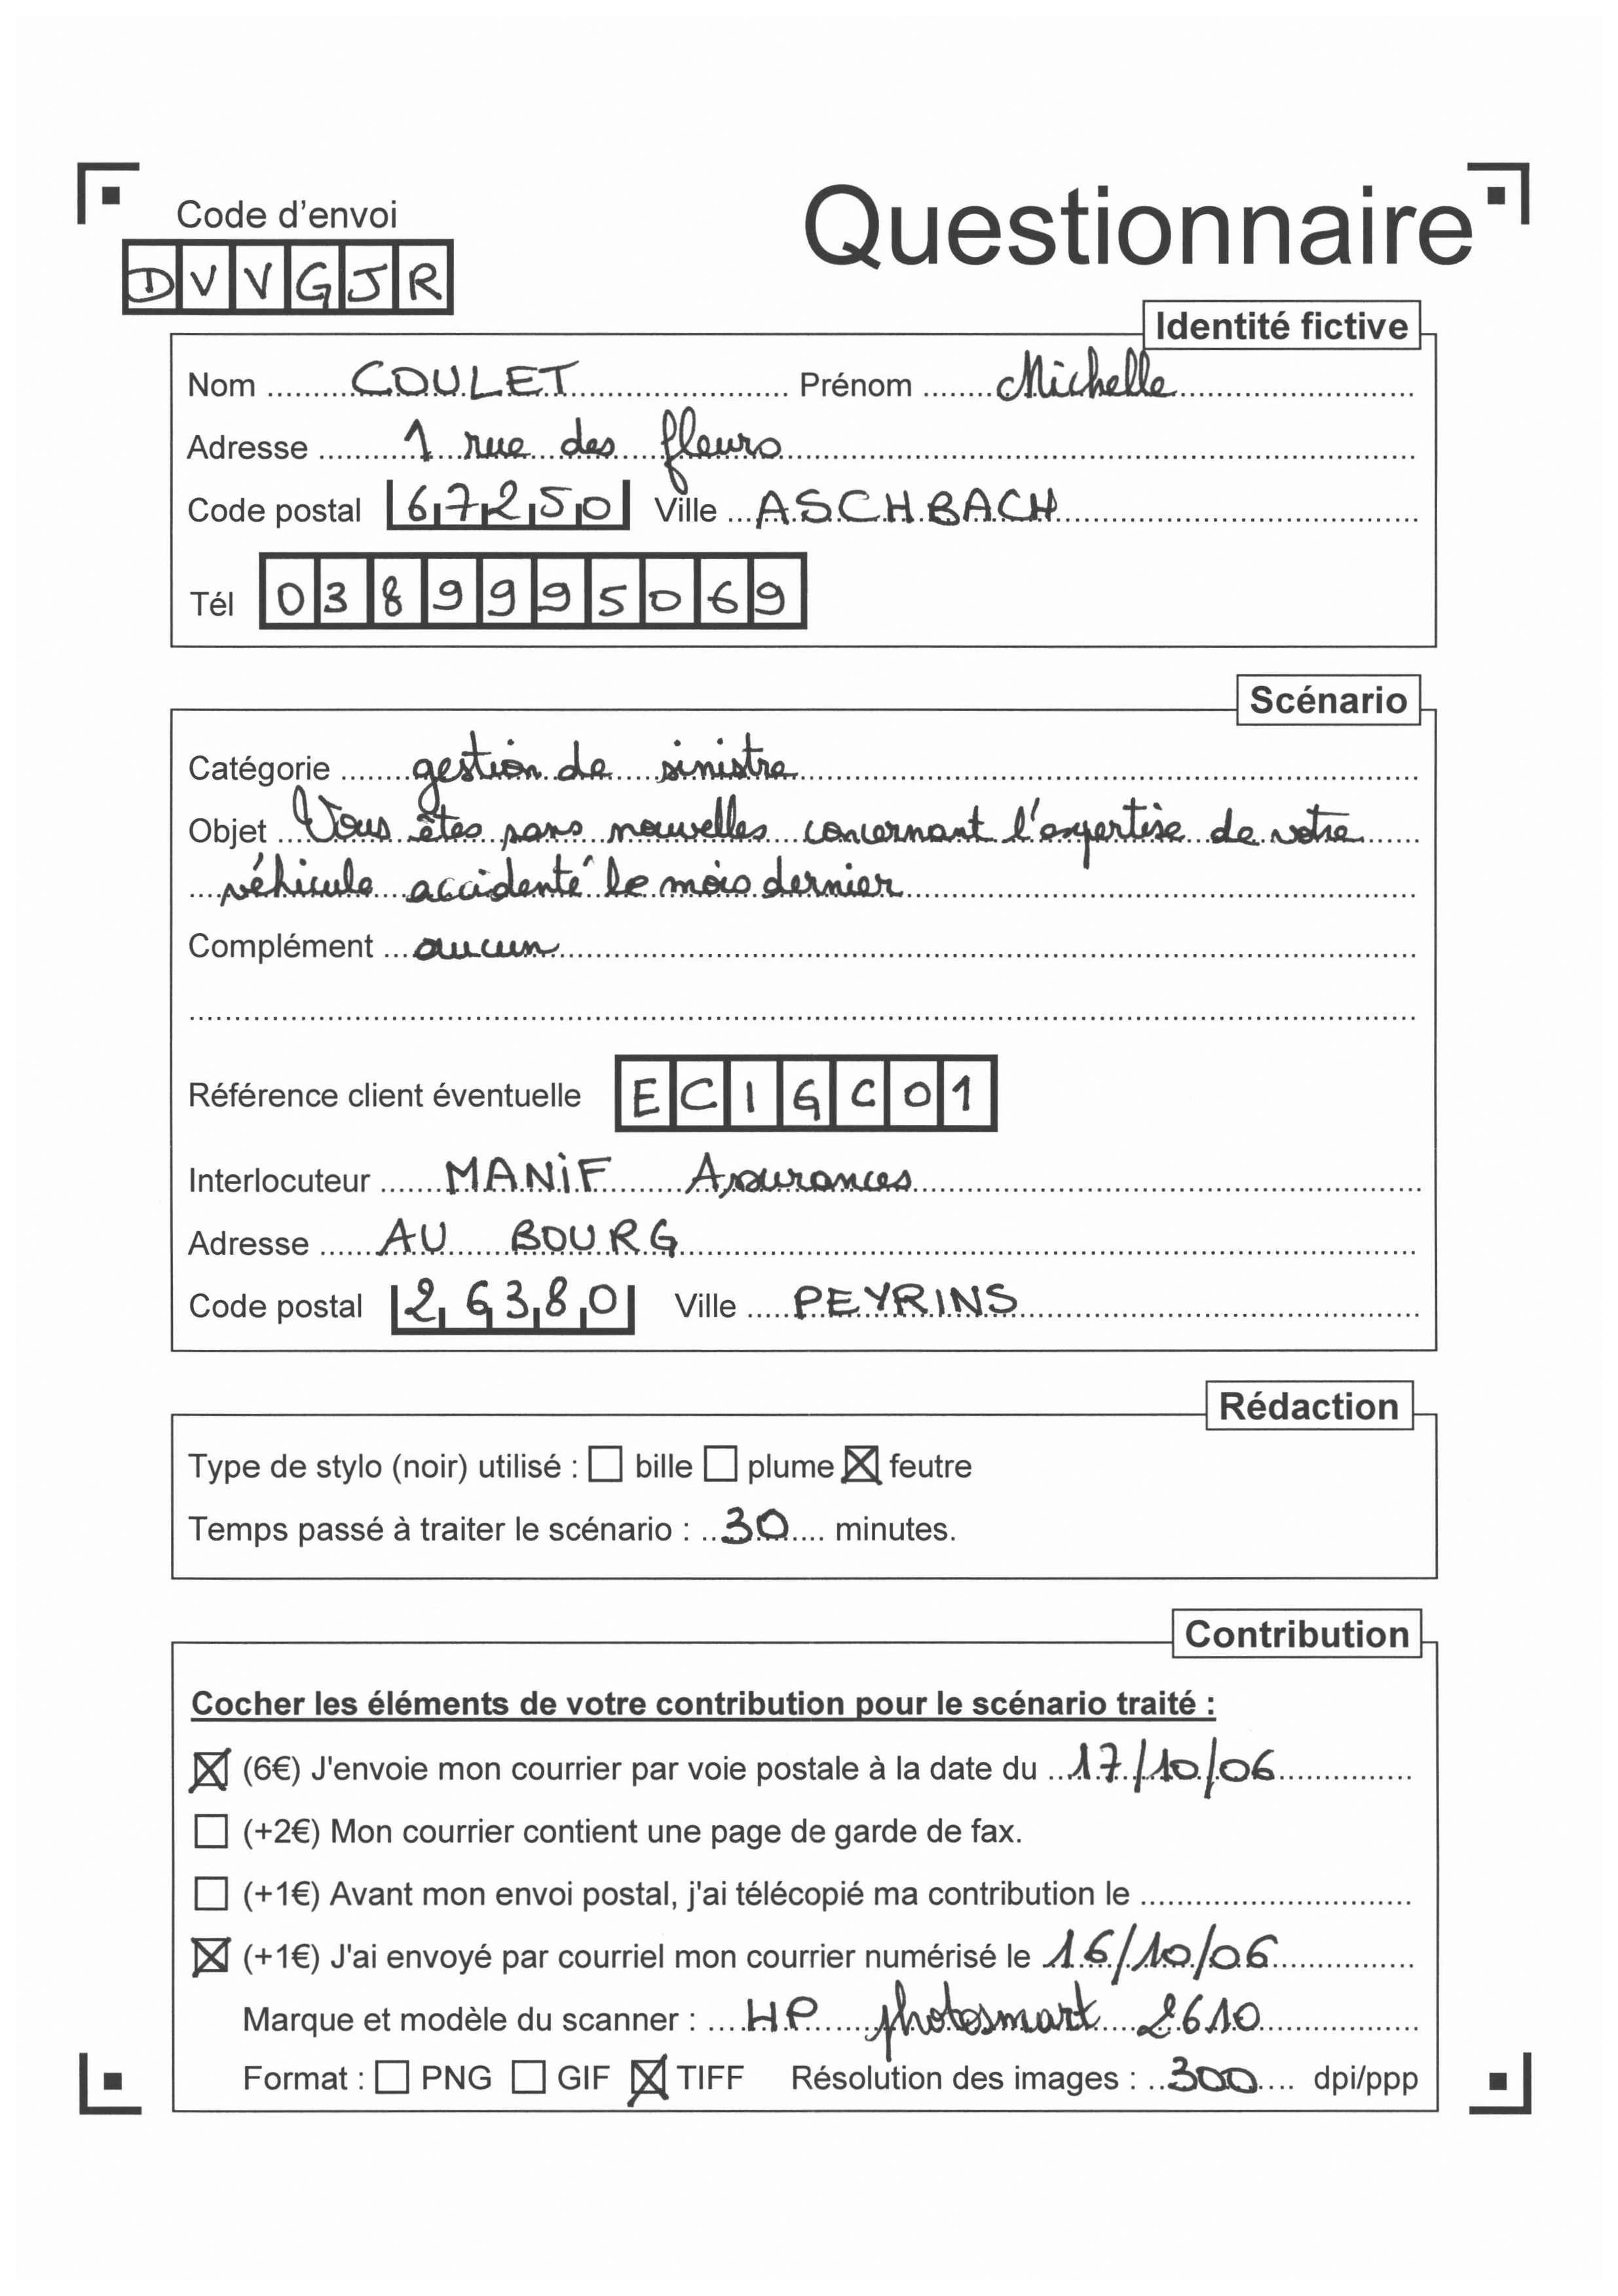 Code d'envoi
Questionnaire
DVVGJR
Identité fictive
Nom COULET Prénom Michelle
Adresse 1 rue des fleurs
Code postal 67250 Ville ASCHBACH
Tél 0389995069
Scénario
Catégorie gestion de sinistre
Objet Vous êtes sans nouvelles concernant l'expertise de votre
véhicule accidenté le mois dernier
Complément aucun
Référence client éventuelle ECIGC01
Interlocuteur MANIF Assurances
Adresse AU BOURG
Code postal 26380 Ville PEYRINS
Rédaction
Type de stylo (noir) utilisé : ☐ bille ☐ plume ☒ feutre
Temps passé à traiter le scénario : 30 minutes.
Contribution
Cocher les éléments de votre contribution pour le scénario traité :
☒ (6€) J'envoie mon courrier par voie postale à la date du 17/10/06
☐ (+2€) Mon courrier contient une page de garde de fax.
☐ (+1€) Avant mon envoi postal, j'ai télécopié ma contribution le
☒ (+1€) J'ai envoyé par courriel mon courrier numérisé le 16/10/06
Marque et modèle du scanner : HP photosmart 2610
Format : ☐ PNG ☐ GIF ☒ TIFF Résolution des images : 300 dpi/ppp